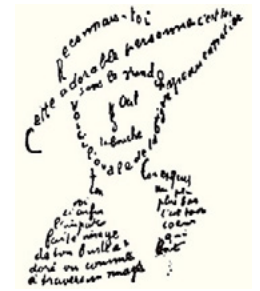 Reconnais-toi
Cette adorable personne c'est toi
sous le grand chapeau canotier
Oeil
Nez
la bouche
Voici l'ovale de ta figure
Ton cou exquis
Voi
ci enfin
l'impar
faite image
de ton buste a
doré vu comme
à travers un nuage
un peu
plus bas
c'est ton
coeur
qui
bat